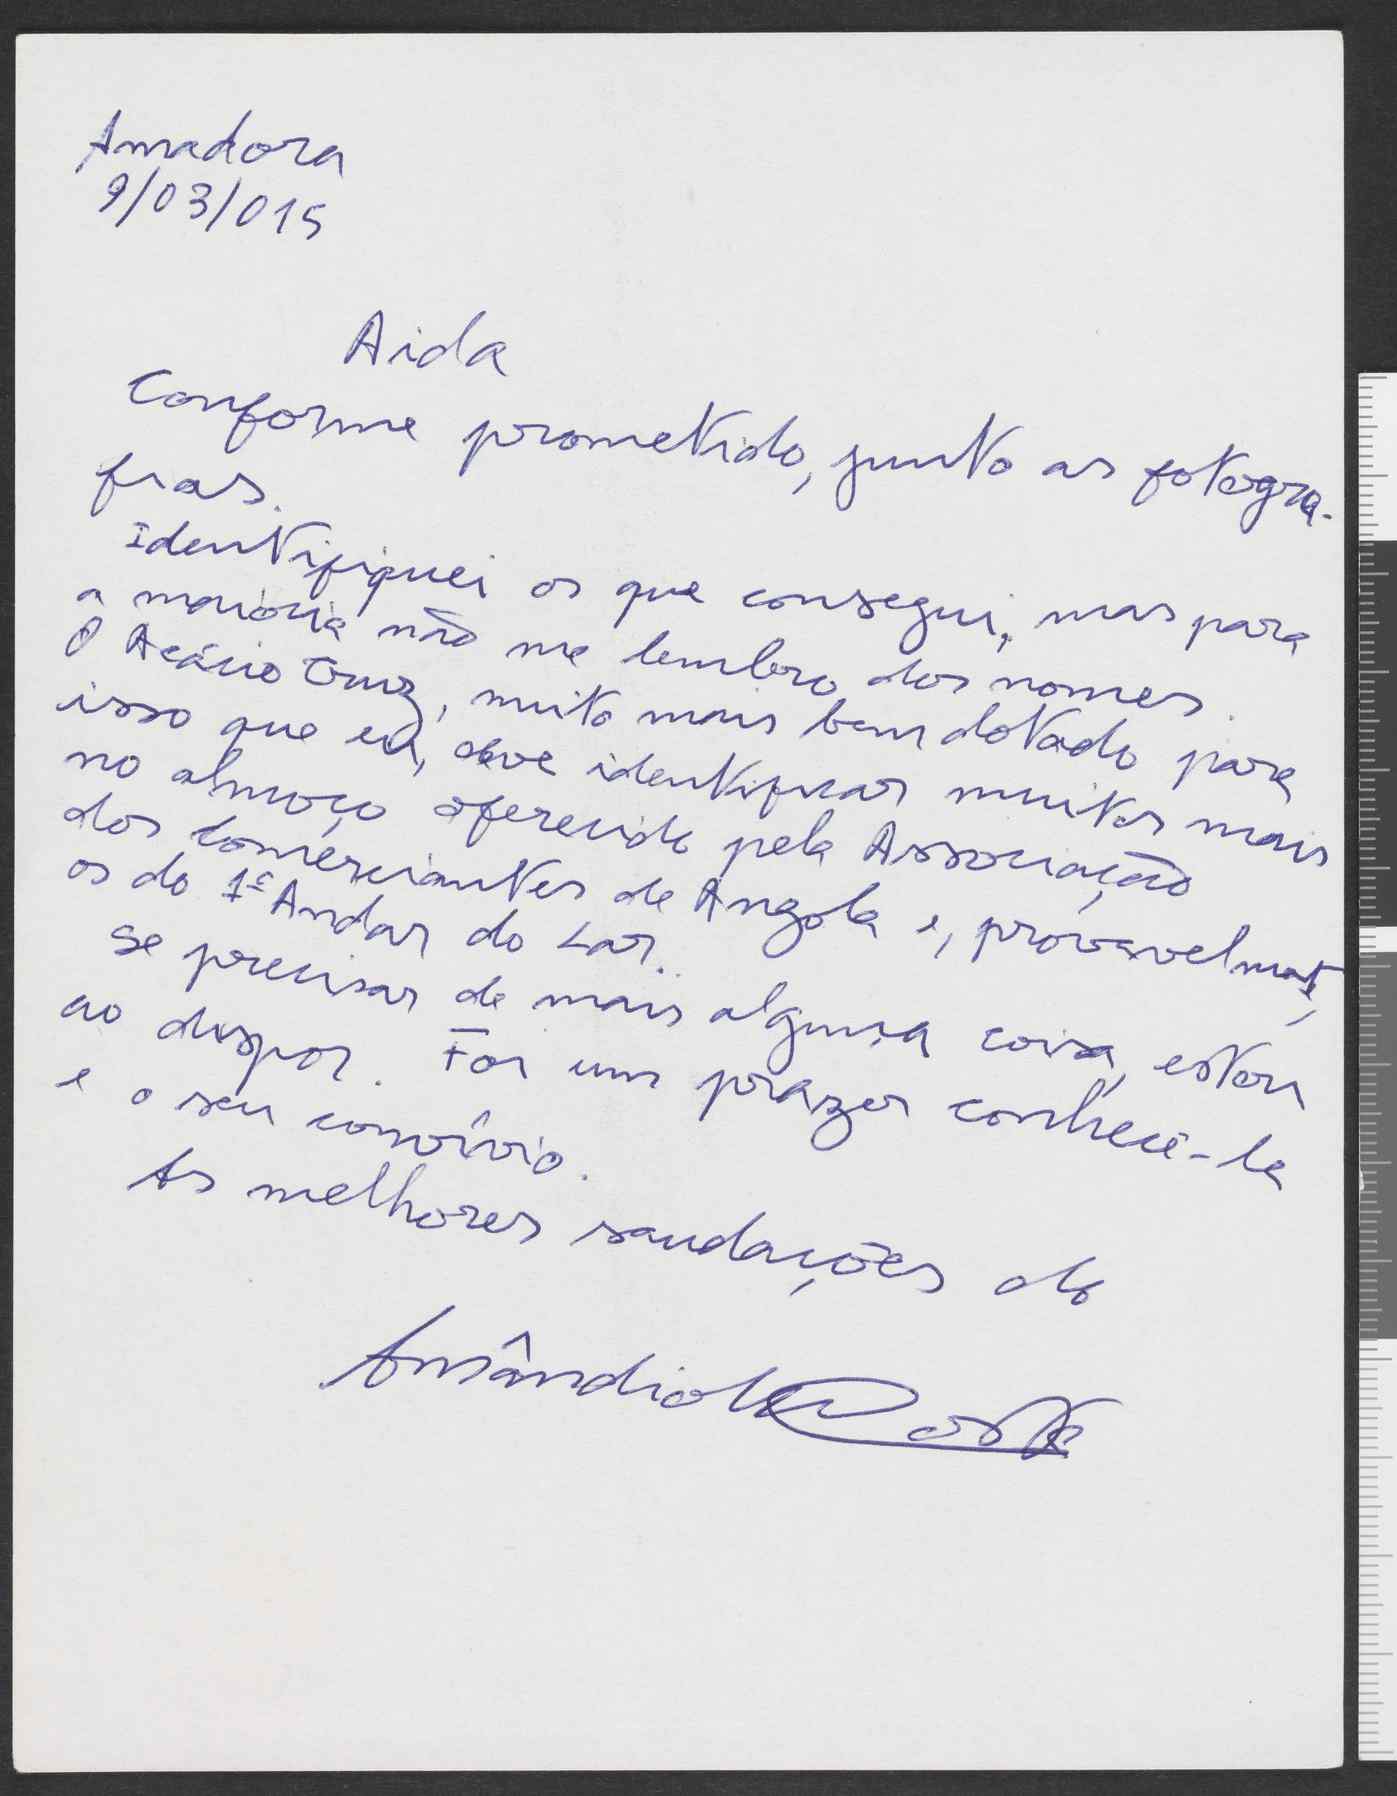 Amadora
9/03/015
Aida
Conforme prometido, junto as fotogra-
fias.
Identifiquei os que consegui, mas para
a maioria não me lembro dos nomes.
O Acácio Cruz, muito mais bem dotado para
isso que eu, deve identificar muitos mais
no almoço oferecido pela Associação
dos Comerciantes de Angola e, provavelmente,
os do 1º Andar do Lar.
Se precisar de mais alguma coisa, estou
ao dispor. Foi um prazer conhecê-la
e o seu convívio.
As melhores saudações do
Amândio Costa